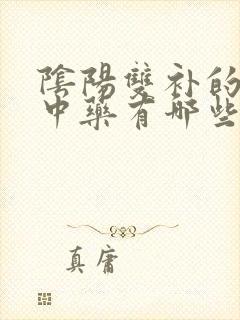 陰陽雙补的
中藥有哪些
真庸